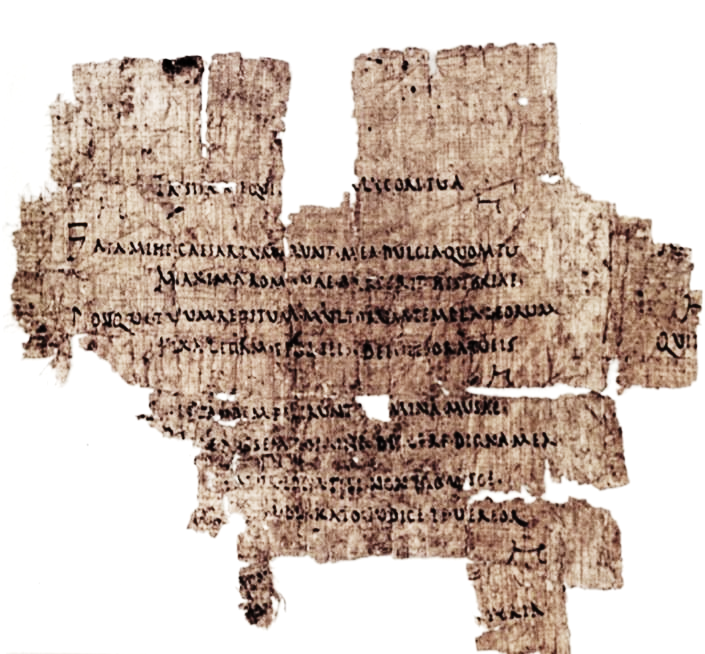 TRISTIA NEQVI A LYCORI TVA
FATA MIHI CAESAR TVM ERVNT MEA DVLCIA QVOM TV
MAXIMA ROMANAE PARS ERIT HISTORIAE
POSTQVE TVVM REDITVM MVLTORVM TEMPLA DEORVM
FIXA LEGAM SPOLIEIS DEIVITIORA TVEIS
QVI
TANDEM FECERVNT MINA MVSAE
POSSEM DOMINA DEICERE DIGNA MEA
ATVR IDEM TIBI NON EGO VISCE
KATO IVDICE TE VEREOR
TYRIA